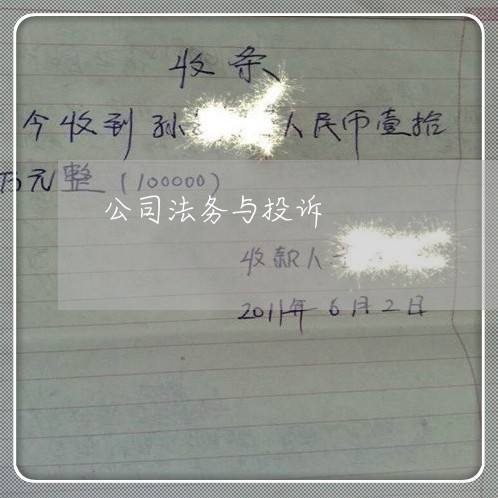 收条
今收到孙 人民币壹拾
万元整（100000）
公司法务与投诉
收款人
2011年6月2日